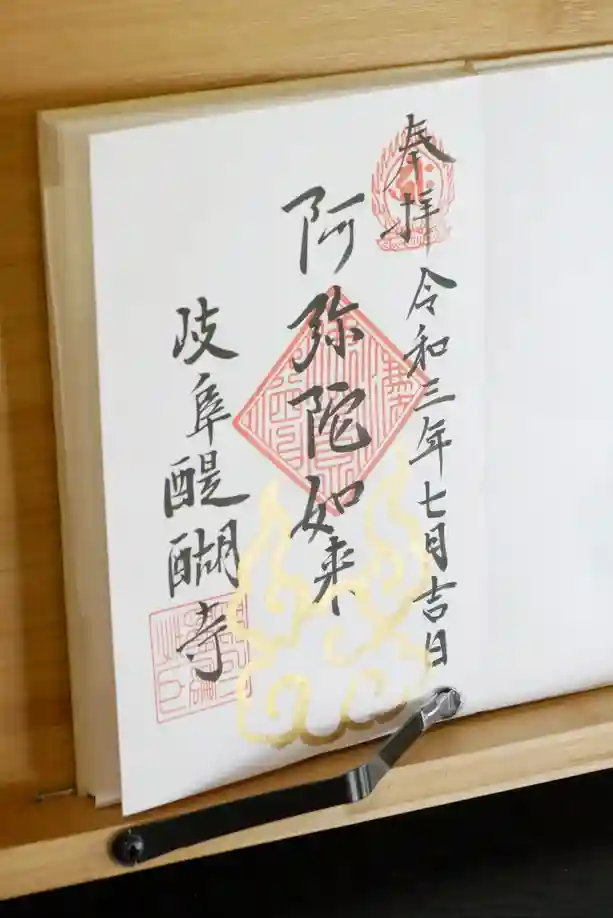 奉拝 令和三年七月吉日
阿弥陀如来
岐阜醍醐寺